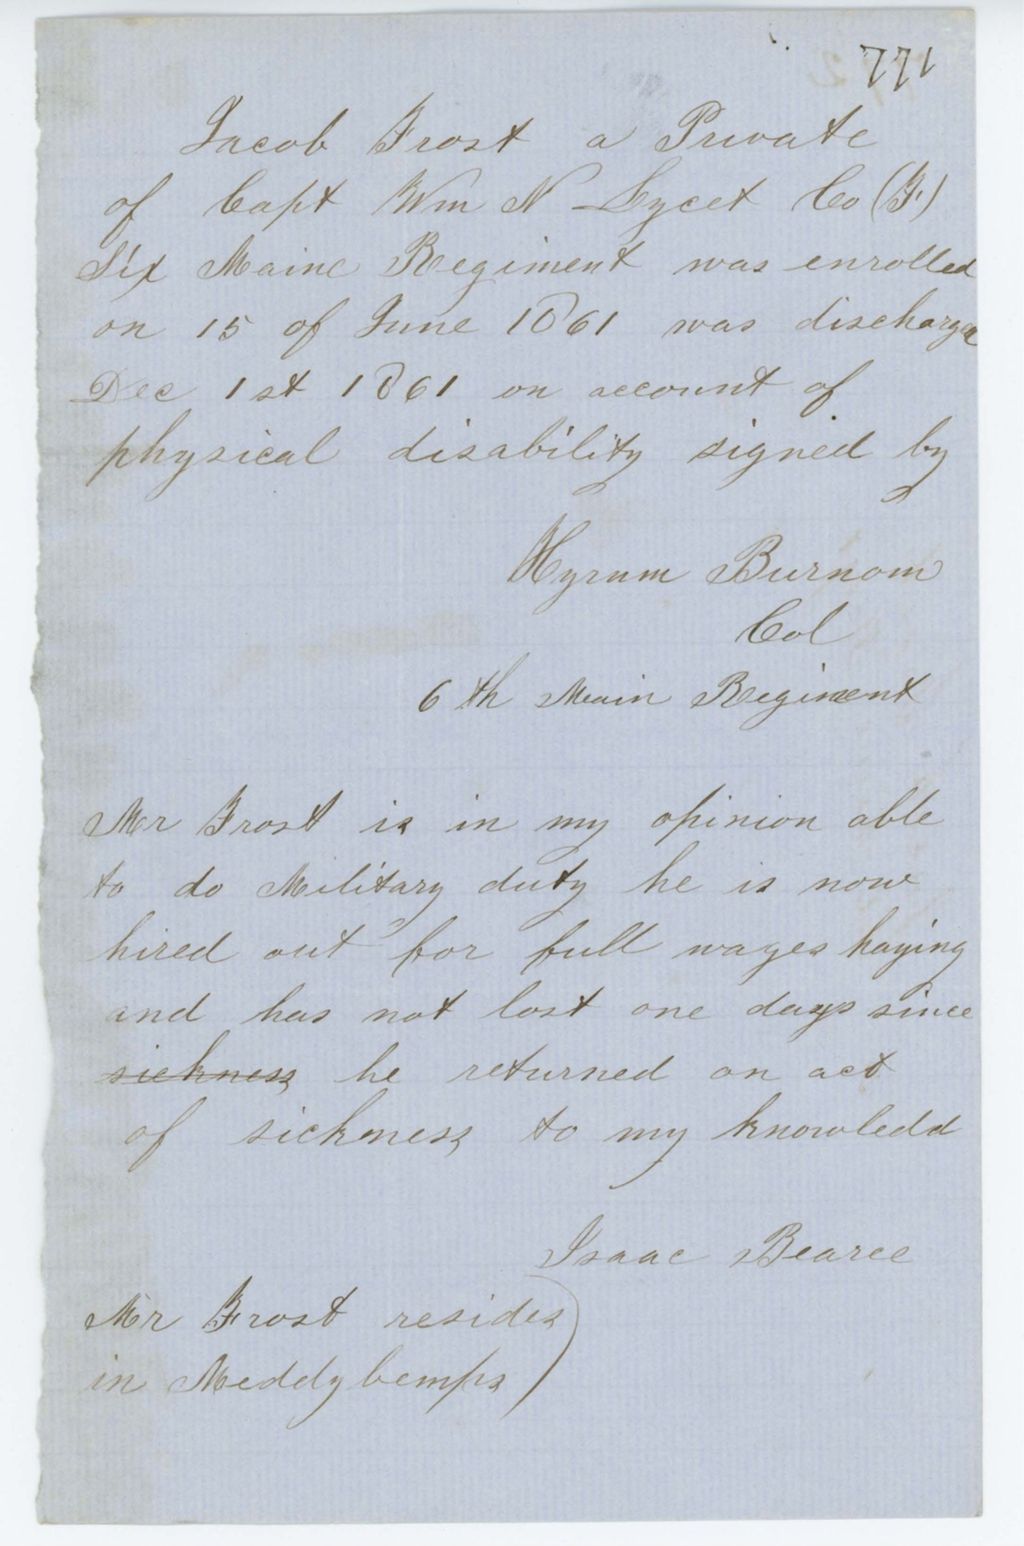 771
Jacob Frost a Private
of Capt Wm N Lycet Co (F)
Six Maine Regiment was enrolled
on 15 of June 1861 was discharge
Dec 1st 1861 on account of
physical disability signed by
Hyrum Burnom
Col
6th Main Regiment
Mr Frost is in my opinion able
to do Military duty he is now
hired out for full wages haying
and has not lost one days since
sickness he returned on act
of sickness to my knowledd
Isaac Bearce
Mr Frost resides
in Meddybemps